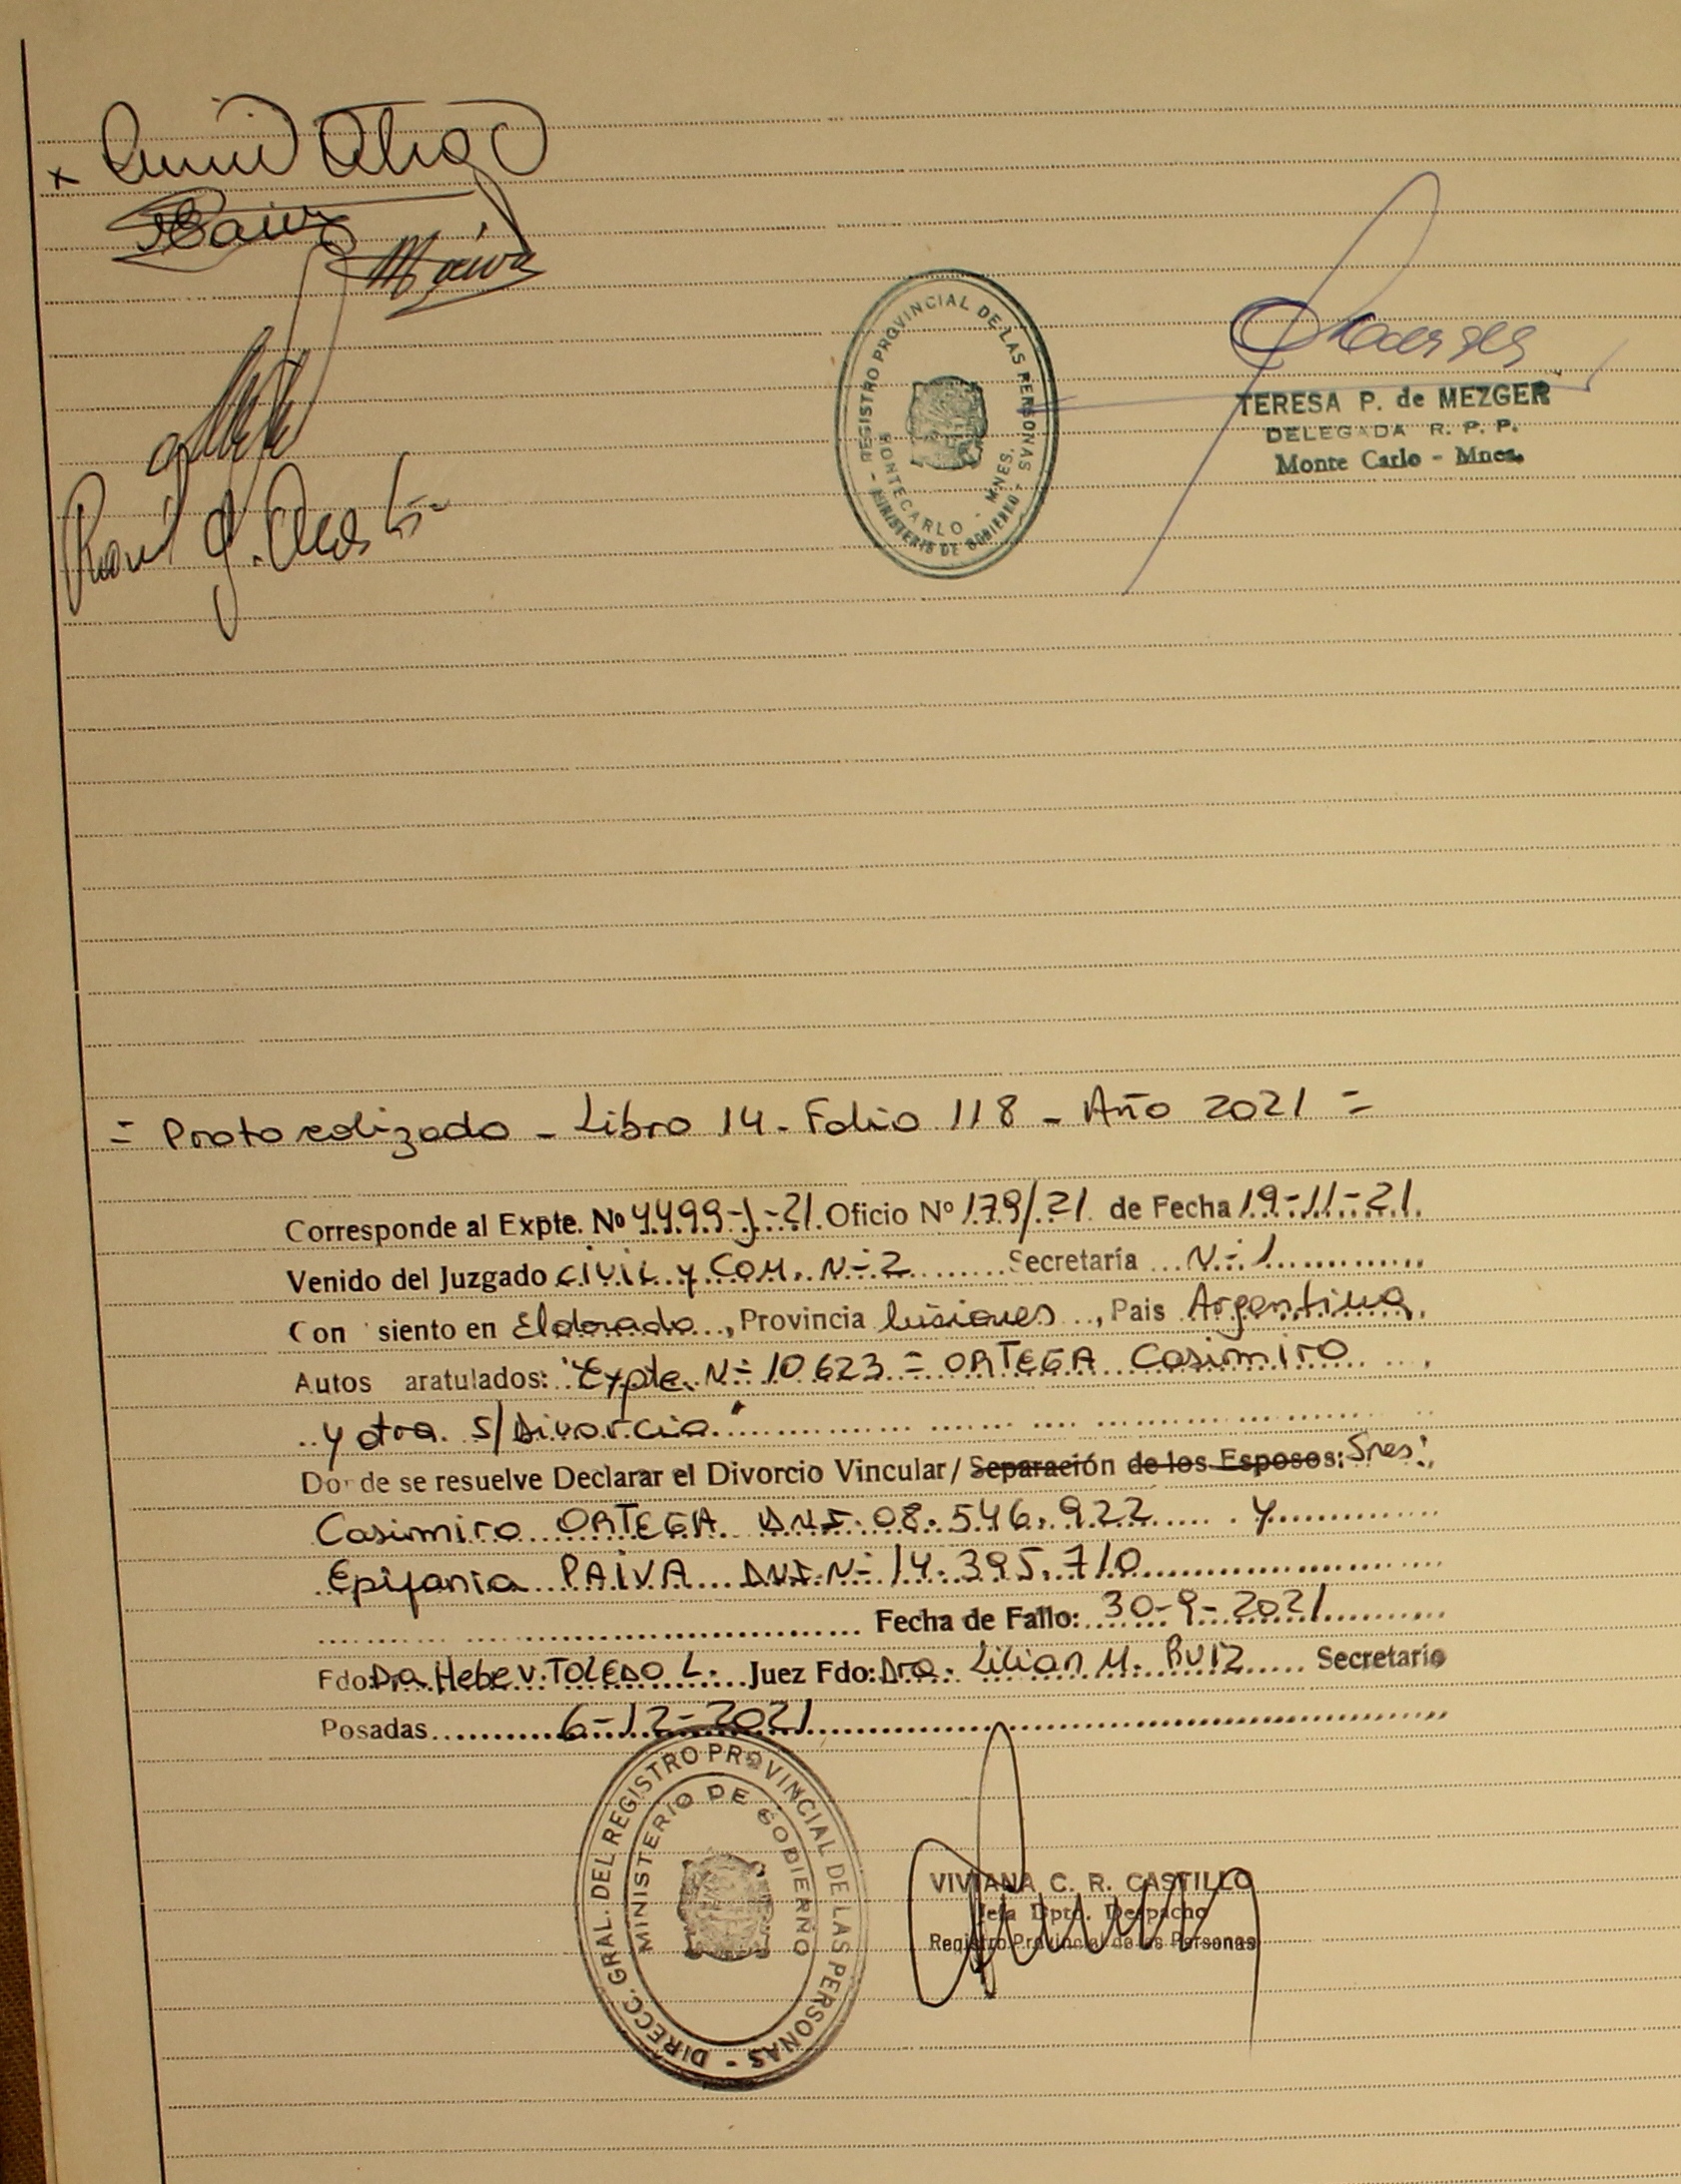 x
Raul J. Acosta
REGISTRO PROVINCIAL DE LAS PERSONAS
MONTECARLO - MNES.
- MINISTERIO DE GOBIERNO -
TERESA P. de MEZGER
DELEGADA R. P. P.
Monte Carlo - Mnes.
= Protocolizado - Libro 14 - Folio 118 - Año 2021 =
Corresponde al Expte. Nº 4499-J-21. Oficio Nº 179/21 de Fecha 19-11-21.
Venido del Juzgado Civil y Com. N=2 Secretaría N=1
Con siento en Eldorado, Provincia Misiones, Pais Argentina,
Autos aratulados: "Expte. N=10623= ORTEGA Casimiro
y otra. S/Divorcio"
Donde se resuelve Declarar el Divorcio Vincular/ Separación de los Esposos: Sres:
Casimiro ORTEGA DNI. 08.546.922 y
Epifania PAIVA DNI. N=14.395.710
Fecha de Fallo: 30-9-2021
Fdo: Dra. Hebe V. TOLEDO L. Juez Fdo: Dra. Lilian M. RUIZ Secretario
Posadas 6-12-2021
DIRECC. GRAL. DEL REGISTRO PROVINCIAL DE LAS PERSONAS -
MINISTERIO DE GOBIERNO
VIVIANA C. R. CASTILLO
Jefa Dpto. Despacho
Registro Provincial de las Personas